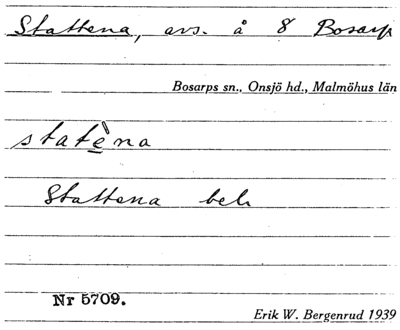 Stattena, avs. å 8 Bosarp
Bosarps sn., Onsjö hd., Malmöhus län
statèna
Stattena beh
Nr 5709.
Erik W. Bergenrud 1939